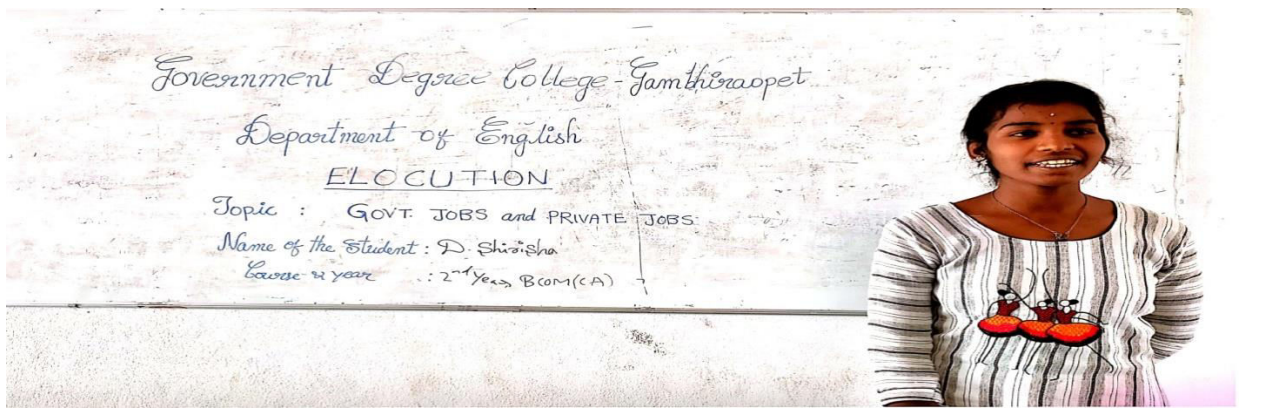 Government Degree College - Gambhiraopet
Department of English
ELOCUTION
Topic : GOVT. JOBS and PRIVATE JOBS
Name of the Student : D. Shirisha
Course & year : 2nd Year, BCOM(CA)